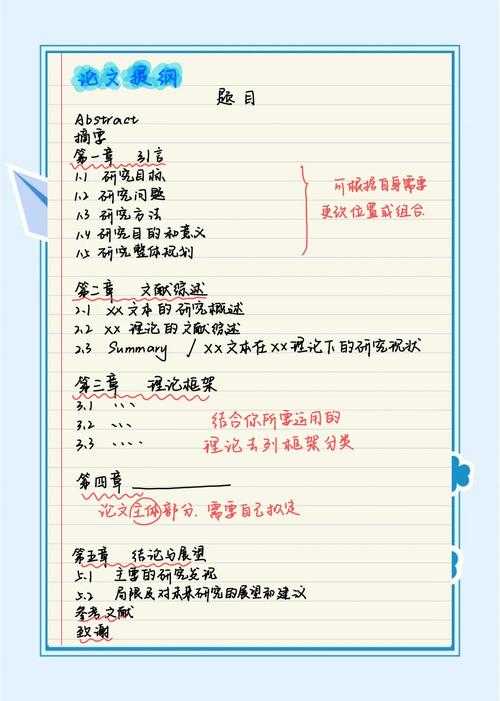 论文提纲
题目
Abstract
摘要
第一章 引言
1.1 研究目标
1.2 研究问题
1.3 研究方法
1.4 研究目的和意义
1.5 研究整体规划
可根据自身需要
更改位置或组合
第二章 文献综述
2.1 xx文本的研究概述
2.2 xx理论的文献综述
2.3 Summary / xx文本在xx理论下的研究现状
第三章 理论框架
3.1 ...
3.2 ...
3.3 ....
结合你所需运用的
理论去列框架分类
第四章
论文主体部分,需要自己拟定
第五章 结论与展望
5.1 主要的研究发现
5.2 局限及对未来研究的展望和建议
参考文献
致谢